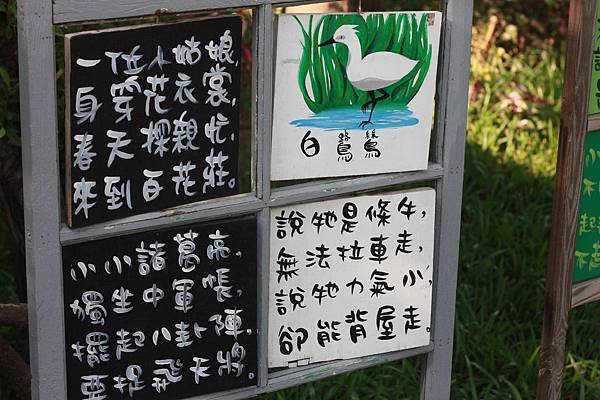 一位小姑娘
身穿花衣裳,
春天探親忙,
來到百花莊。
白鷺鷥
小小諸葛亮,
獨坐中軍帳,
擺起八卦陣,
要捉飛天將。
說牠是條牛,
無法拉車走,
說牠力氣小,
卻能背屋走。